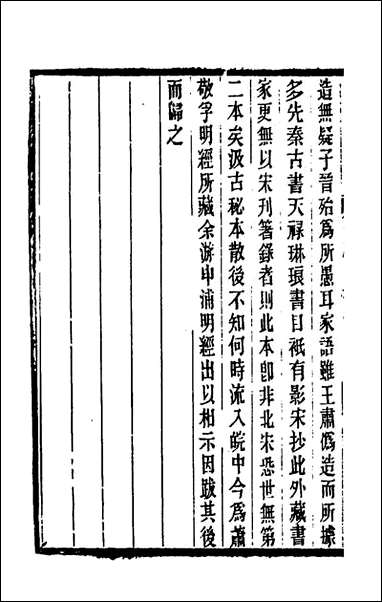 造無疑子晉殆爲所愚耳家語雖王肅僞造而所據
多先秦古書天祿琳琅書目衹有影宋抄此外藏書
家更無以宋刊箸錄者則此本卽非北宋恐世無第
二本矣汲古秘本散後不知何時流入皖中今爲蕭
敬孚明經所藏余游申浦明經出以相示因跋其後
而歸之